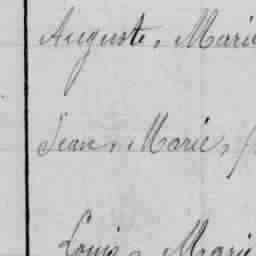 Auguste, Marie
Jean, Marie,
Louis, Marie